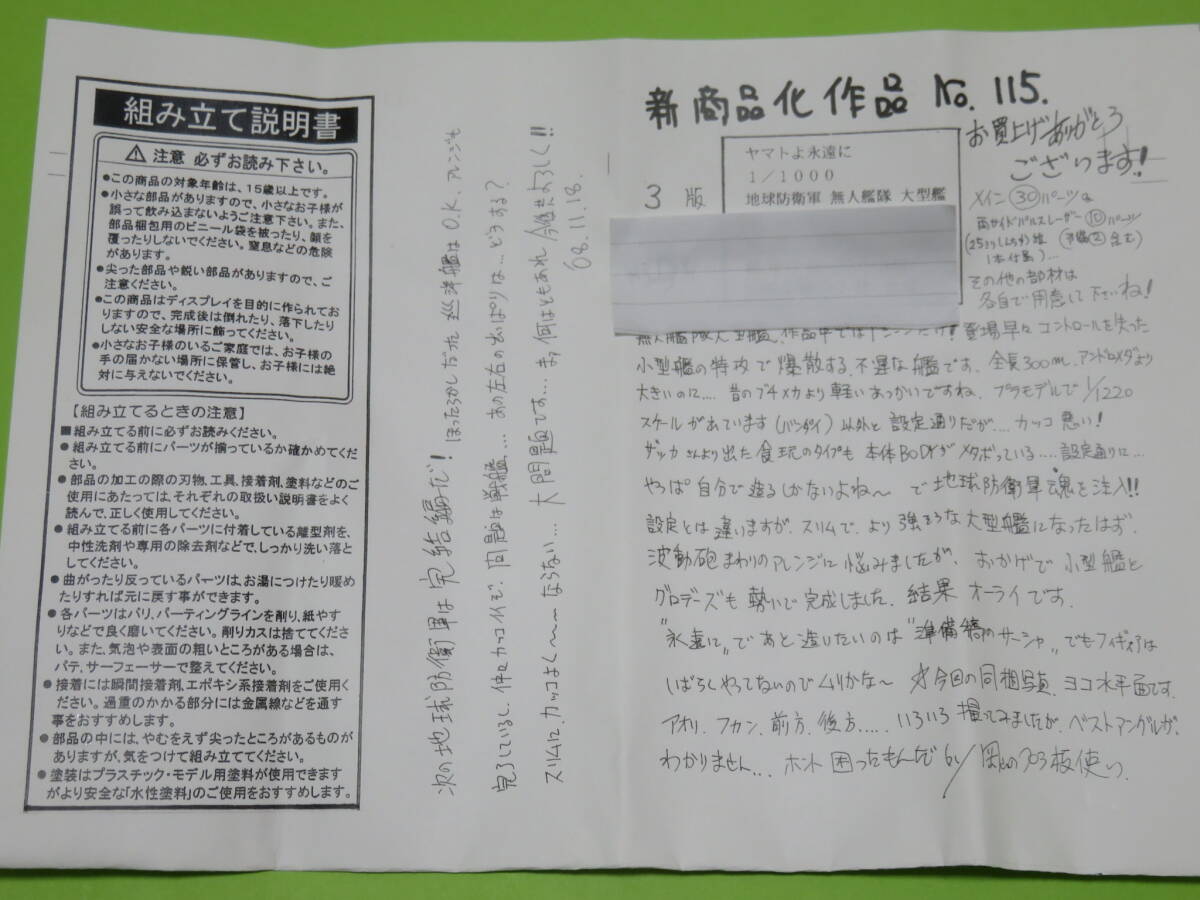 組み立て説明書
⚠ 注意 必ずお読み下さい。
●この商品の対象年齢は、15歳以上です。
●小さな部品がありますので、小さなお子様が
誤って飲み込まないようご注意下さい。また、
部品梱包用のビニール袋を被ったり、顔を
覆ったりしないでください。窒息などの危険
があります。
●尖った部品や鋭い部品がありますので、ご
注意ください。
●この商品はディスプレイを目的に作られてお
りますので、完成後は倒れたり、落下したり
しない安全な場所に飾ってください。
●小さなお子様のいるご家庭では、お子様の
手の届かない場所に保管し、お子様には絶
対に与えないでください。
【組み立てるときの注意】
■組み立てる前に必ずお読みください。
●組み立てる前にパーツが揃っているか確かめてくだ
さい。
●部品の加工の際の刃物、工具、接着剤、塗料などのご
使用にあたっては、それぞれの取扱い説明書をよく
読んで、正しく使用してください。
●組み立てる前に各パーツに付着している離型剤を、
中性洗剤や専用の除去剤などで、しっかり洗い落と
してください。
●曲がったり反っているパーツは、お湯につけたり暖め
たりすれば元に戻す事ができます。
●各パーツはバリ、パーティングラインを削り、紙やす
りなどで良く磨いてください。削りカスは捨ててくださ
い。また、気泡や表面の粗いところがある場合は、
パテ、サーフェーサーで整えてください。
●接着には瞬間接着剤、エポキシ系接着剤をご使用く
ださい。過重のかかる部分には金属線などを通す
事をおすすめします。
●部品の中には、やむをえず尖ったところがあるものが
ありますが、気をつけて組み立ててください。
●塗装はプラスチック・モデル用塗料が使用できます
がより安全な「水性塗料」のご使用をおすすめします。
次の地球防衛軍は完結編だ! ほったらかしだった巡洋艦はO.K. アレンジも
見えているし、仲々カッコイイぞ、問題は戦艦、… あの左右の出っぱりは… どうする?
スリムに、カッコよく〜〜ならない… 大問題です… まァ何はともあれ 今後共よろしく!!
'08.11.18.
新商品化作品 No.115.
お買上げありがとう
ございます!
3版
ヤマトよ永遠に
1/1000
地球防衛軍 無人艦隊 大型艦
メイン㉚パーツ&
両サイドパルスレーザー⑩パーツ
1本付属)…
その他の部材は
各自で用意して下さいね!
無人艦隊大型艦、作品中では1シーンだけ! 登場早々コントロールを失った
小型艦の特攻で爆散する、不運な艦です。全長300m、アンドロメダより
大きいのに…. 昔のプチメカより軽いあつかいですね、プラモデルで1/1220
スケールが出ています(バンダイ) 以外と設定通りだが…. カッコ悪い!
ザッカさんより出た食玩のタイプも 本体BODYがメタボっている….. 設定通りに…
やっぱ自分で造るしかないよね〜 で地球防衛軍魂を注入!!
設定とは違いますが、スリムで、より強そうな大型艦になったはず、
波動砲まわりのアレンジに悩みましたが、おかげで小型艦と
グロデーズも勢いで完成しました、結果オーライです。
"永遠に"であと造りたいのは"準備稿のサーシャ" でもフィギュアは
しばらくやってないのでムリかな〜 ☆今回の同梱写真、ヨコ水平面です、
アオリ、フカン、前方、後方….. いろいろ撮ってみましたが、ベストアングルが、
わかりません… ホント困ったもんだ